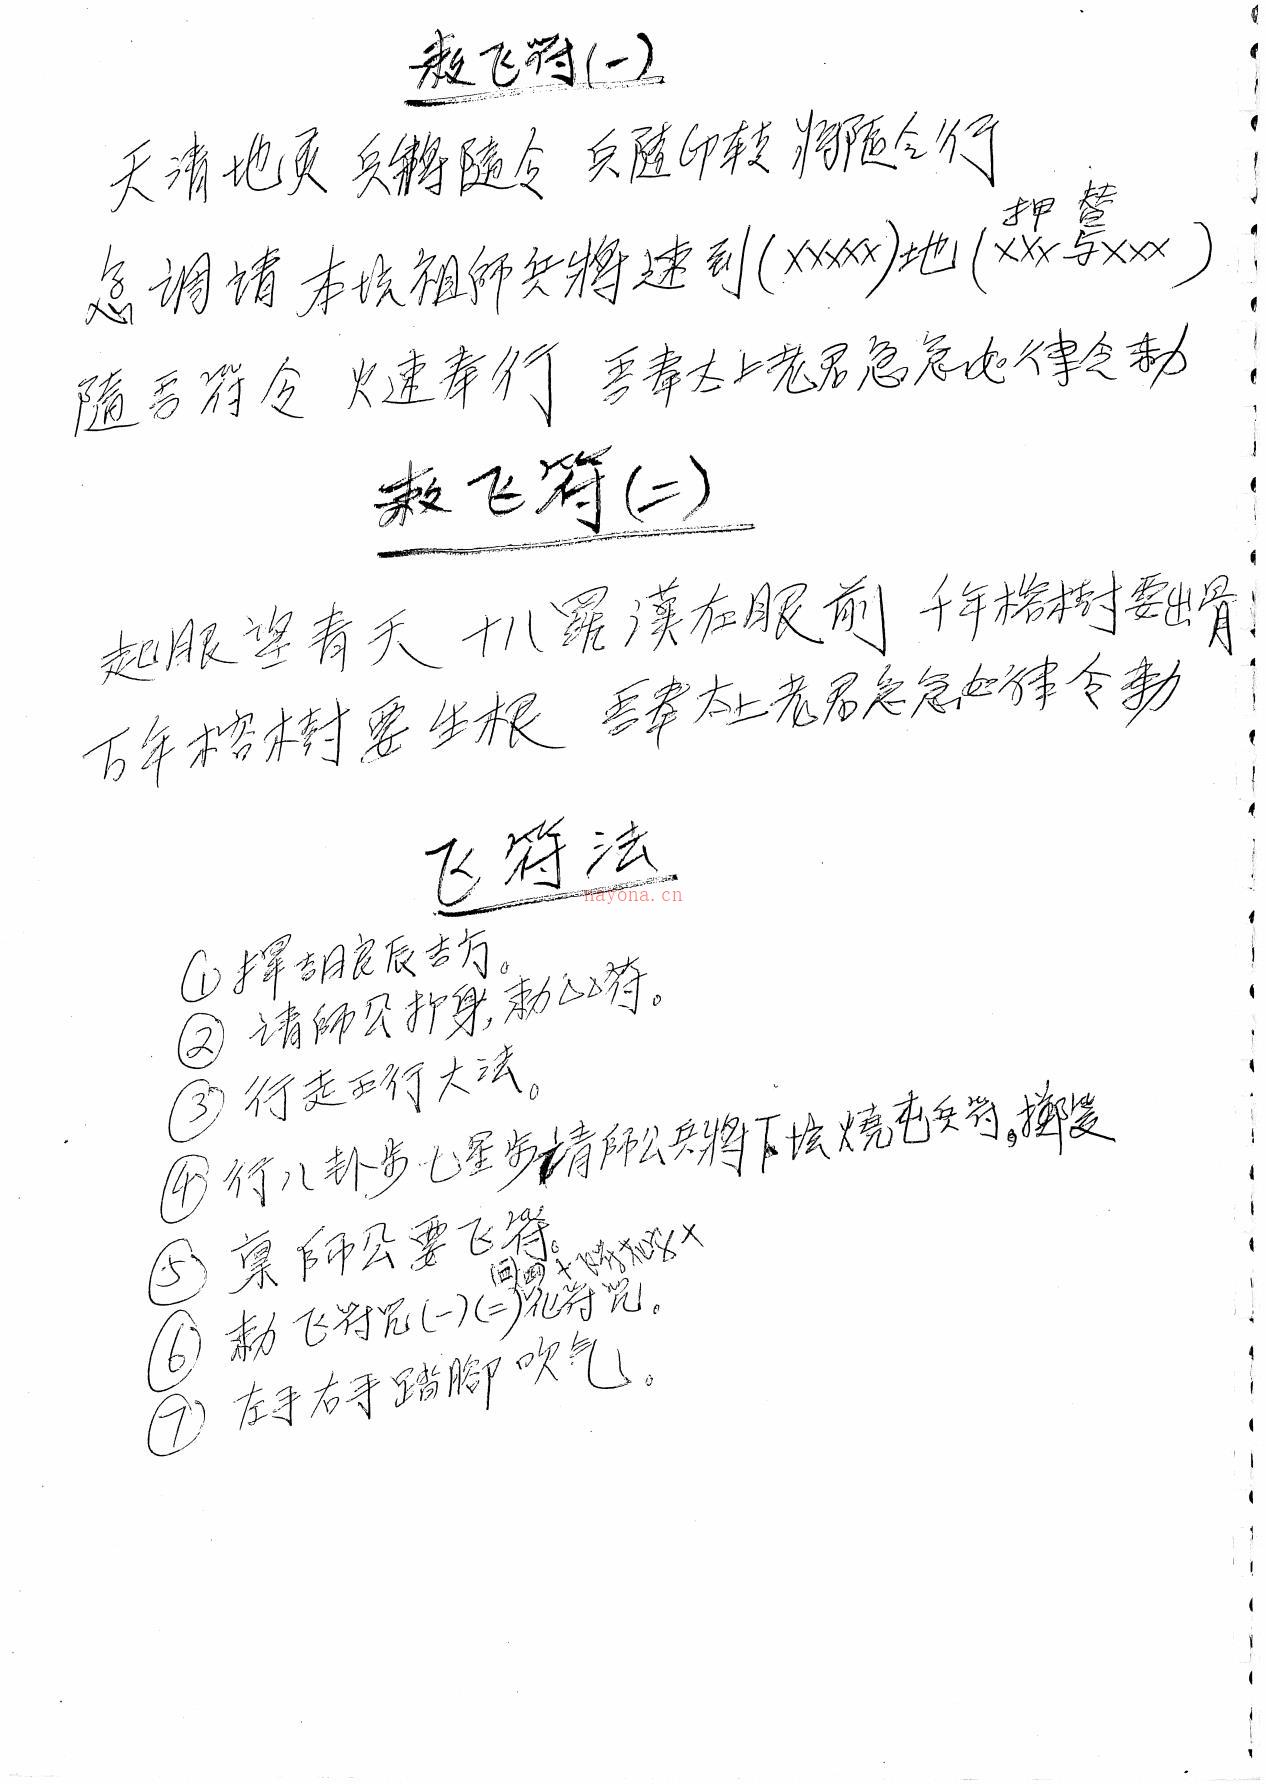 敕飞符(一)
天清地灵 兵將隨令 兵隨印转 將隨令行
押 替
急调请本坛祖師兵將速到(xxxxx)地(xxx与xxx)
隨吾符令 火速奉行 吾奉太上老君急急如律令勅
敕飞符(二)
起眼望青天 十八羅漢在眼前 千年榕樹要出骨
万年榕樹要生根 吾奉太上老君急急如律令勅
飞符法
nayona.cn
①择良辰吉方。
②请師公扶身,勅符。
③行走五行大法。
④行八卦步七星步请師公兵將下坛燒屯兵符。掷筊
⑤禀師公要飞符。
⑥勅飞符咒(一)(二)化符咒。
⑦左手右手踏腳吹气。